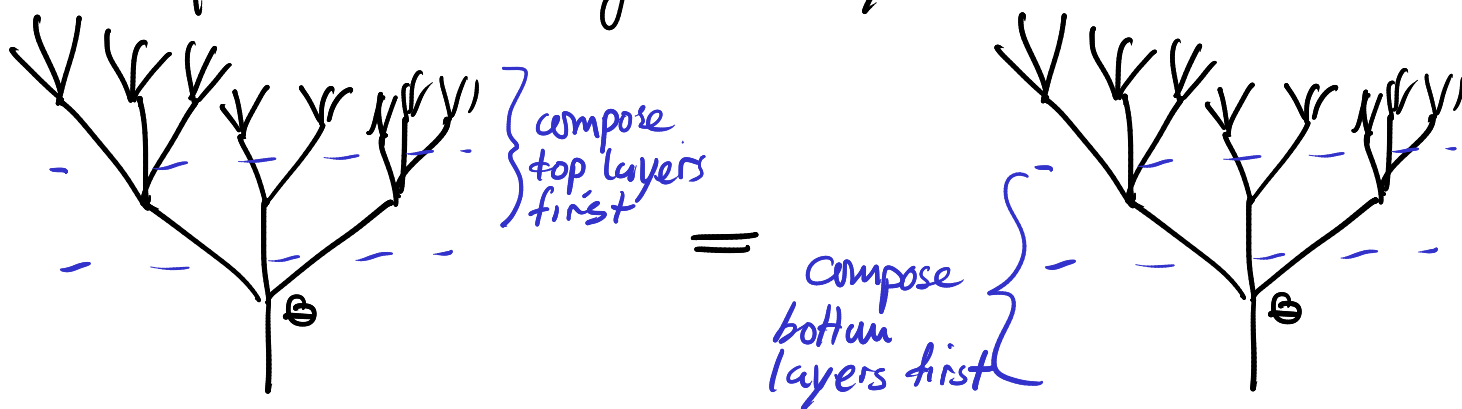 compose
top layers
first
=
compose
bottom
layers first